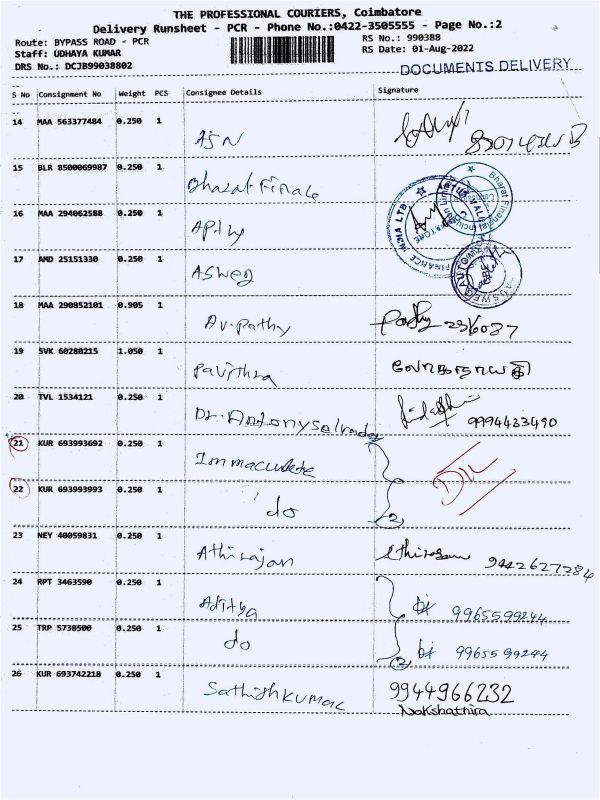 THE PROFESSIONAL COURIERS, Coimbatore
Delivery Runsheet - PCR - Phone No.:0422-3505555 - Page No.:2
Route: BYPASS ROAD - PCR RS No.: 990388
Staff: UDHAYA KUMAR RS Date: 01-Aug-2022
DRS No.: DCJB99038802 DOCUMENTS DELIVERY
S No Consignment No Weight PCS Consignee Details Signature
14 MAA 563377484 0.250 1 AJN
15 BLR 8500069987 0.250 1 Bharat Finance
16 MAA 294062588 0.250 1 Apthy
17 AMD 25151330 0.250 1 Asweg
18 MAA 290852101 0.905 1 Av. Pathy Pathy 256087
19 SVK 60280215 1.050 1 Pavithra
20 TVL 1534121 0.250 1 Dr. Antony Selvaday 9994433490
21 KUR 693993692 0.250 1 Immaculate
22 KUR 693993993 0.250 1 do 2
23 NEY 40059831 0.250 1 Athirajan Athirajan 9442627284
24 RPT 3463590 0.250 1 Aditya 9965599244
25 TRP 5738500 0.250 1 do 2 9965599244
26 KUR 693742218 0.250 1 Sathishkumar 9944966232
Nakshathira